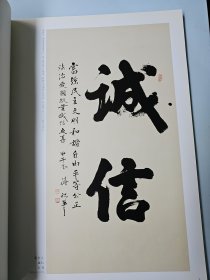 诚信
富强民主文明和谐自由平等公正
法治爱国敬业诚信友善